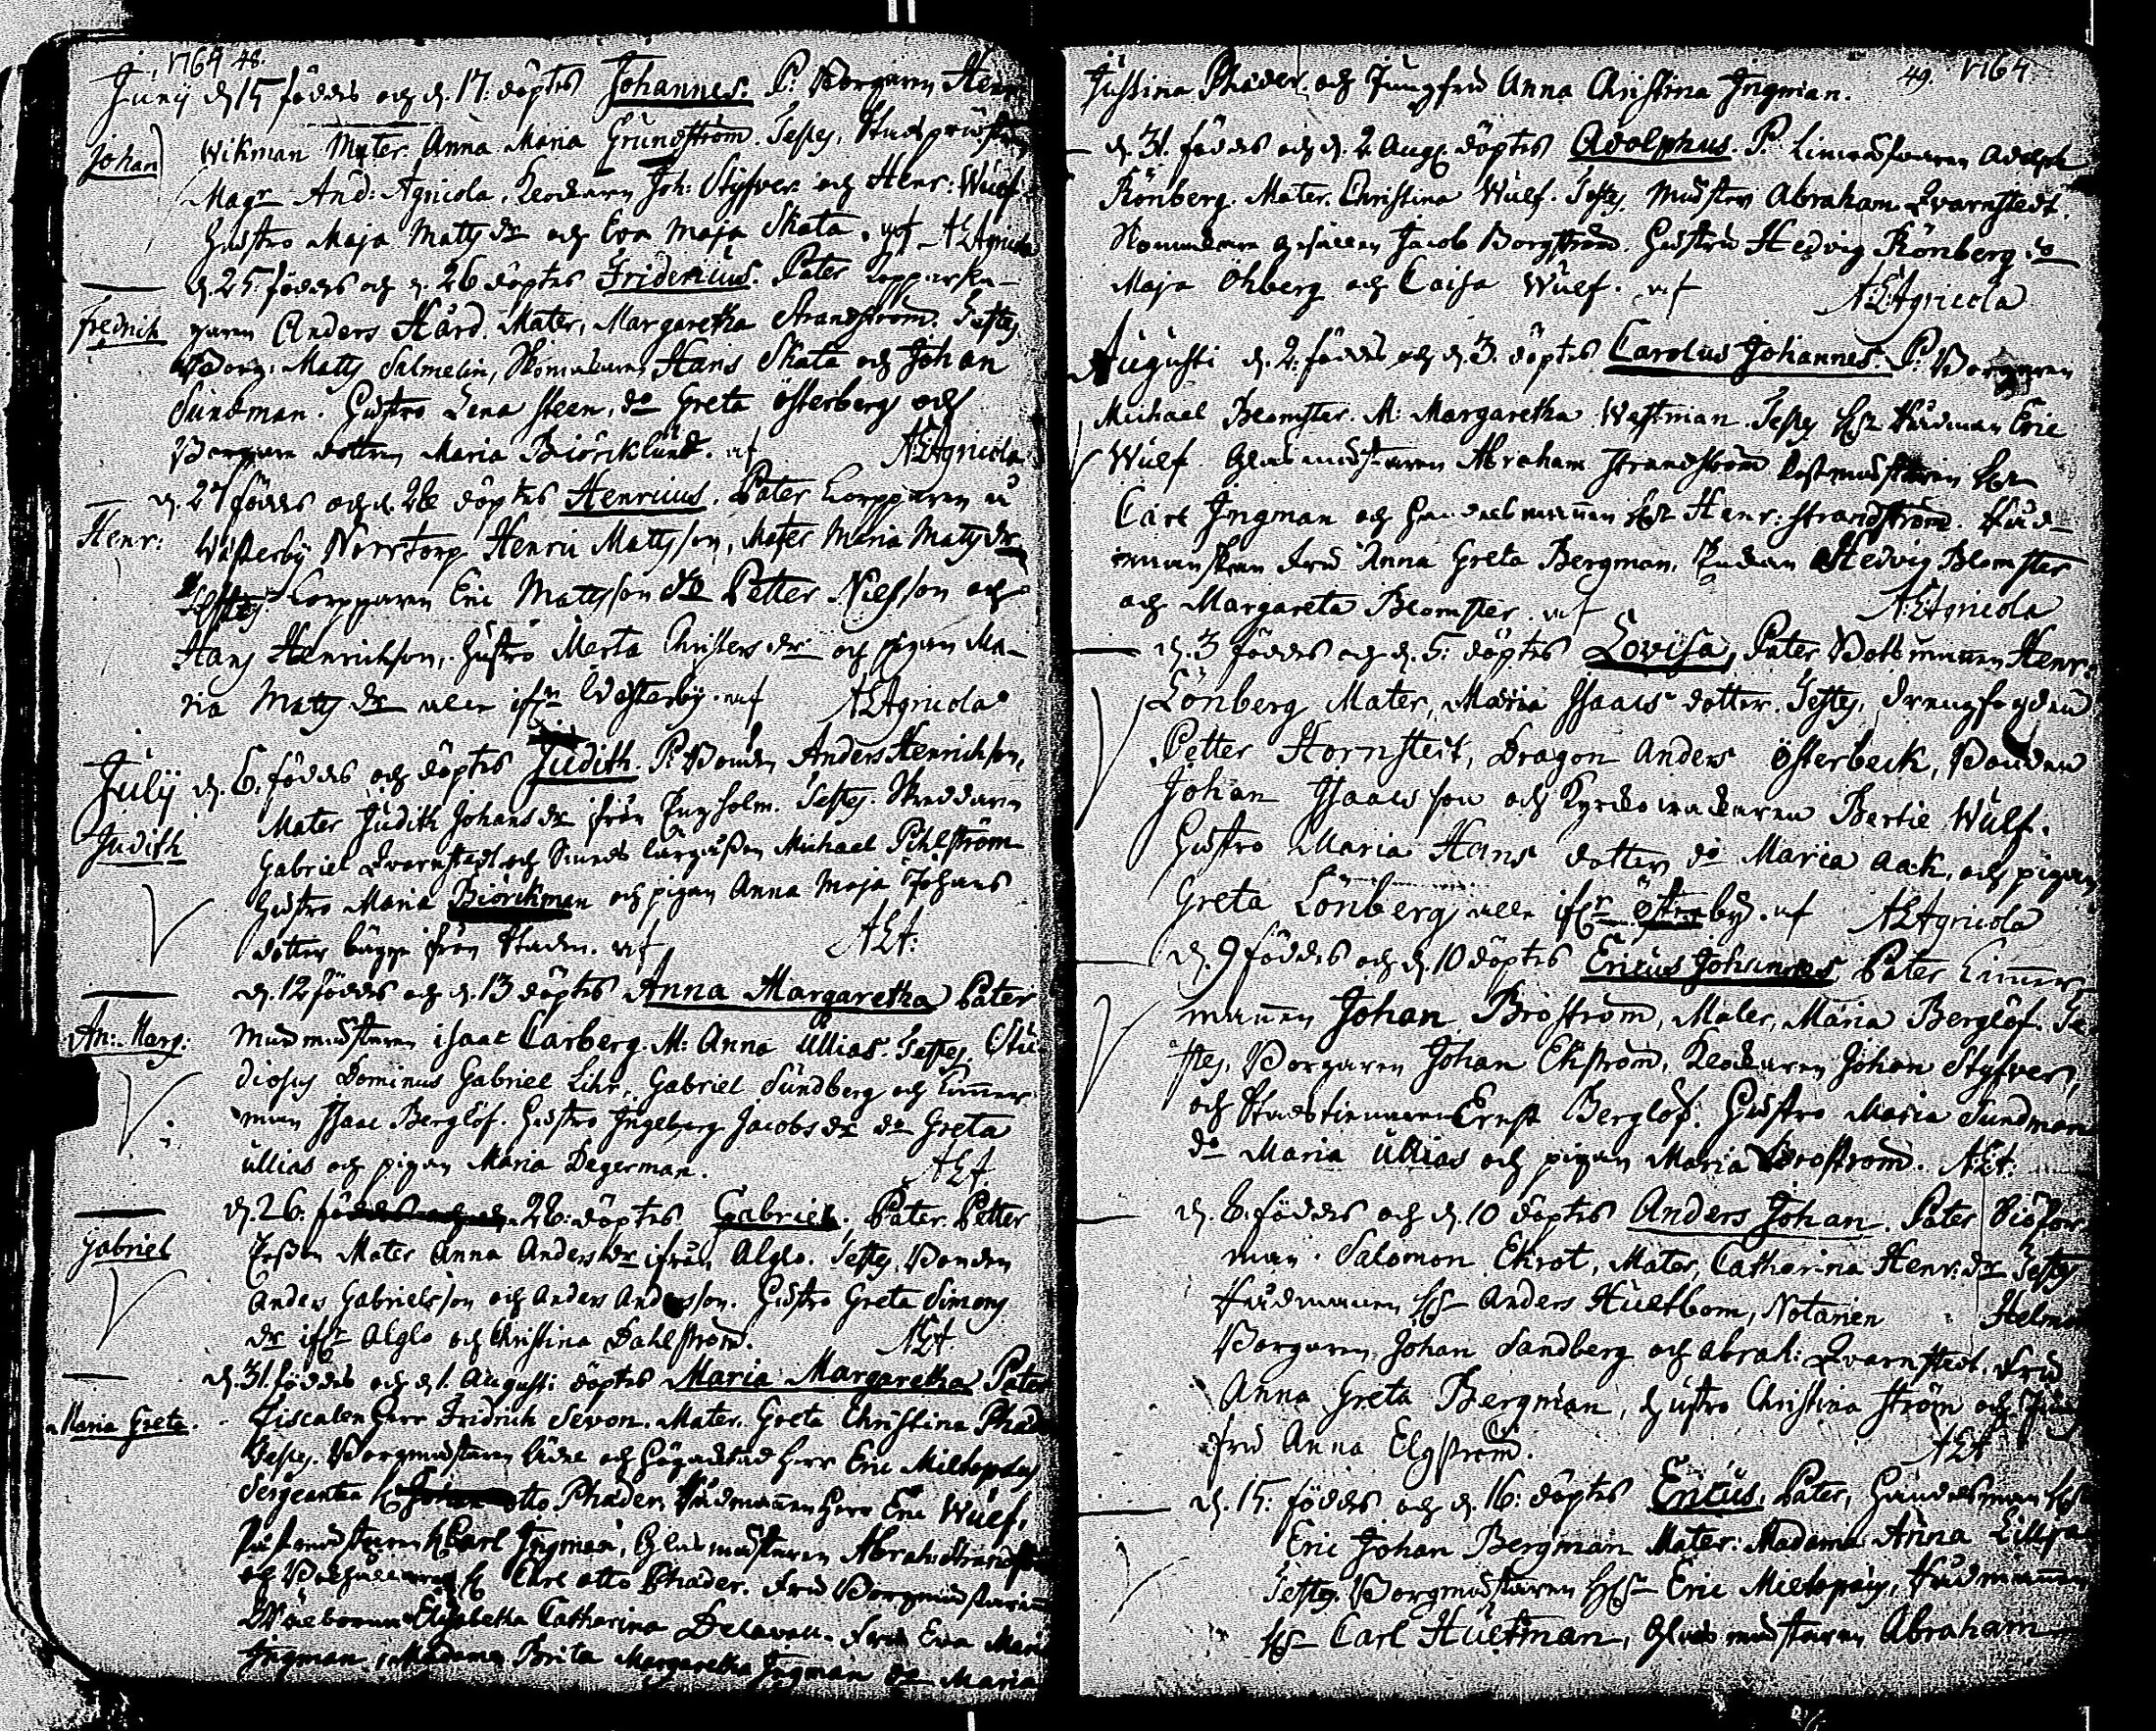 1764 48.
Junij d. 15 föddes och d. 17. döptes Johannes. P. Borgaren Henr
Johan
Wikman Mater Anna Maria Grundström. Testes,
Magr And: Agricola, Klockaren Joh: Styfver och Henr: Wulf.
Hustro Maja Matts dr och Eva Maja Skata. utf AEAgricola
d. 25 föddes och d. 26 döptes Fridericus. Pater Torparen
Fredrich
Anders Hård. Mater, Margaretha Strandström. Testes
Borg: Matts Salmelin, Skomakaren Hans Skata och Johan
Sundman. Hustro Lena Steen, do Greta Österberg och
Borgare dottren Maria Biörklund. utf AEAgricola
d. 27 föddes och d. 28 döptes Henricus. Pater Torpparen
Henr:
Wästerby Norrtorp Henric Mattsson, Mater Maria Matts dr
Testes Torpparen Eric Mattsson do Petter Nilsson och
Hans Henrichson, Hustro Merta Christers dr och pigan Ma-
ria Matts dr alla ifrn Westerby. utf AEAgricola
Julij d. 6. föddes och döptes Judith. P. Bonden Anders Henrichson,
Judith
Mater Judith Johans dr från Testes. Skreddaren
Gabriel Qvarnstedt och Michael Pihlström
Hustro Maria Biörckman och pigan Anna Maja Johans
dotter bägge från Staden. utf AEA:
d. 12 föddes och d. 13 döptes Anna Margaretha Pater
An: Marg:
Murmästaren Isaac Carberg. M: Anna Ullias. Testes. Stu-
diosus Dominus Gabriel Lihr, Gabriel Sundberg och Timer
man Isaac Berglöf. Hustro Ingeborg Jacobs dr do Greta
Ullias och pigan Maria Degerman. AEA.
d. 26. föddes och d. 28. döptes Gabriel. Pater Petter
Gabriel
Mater Anna Anders dr ifrån Alglo. Testes, Bonden
Anders Gabrielsson och Anders Andersson. Hustro Greta Simons
dr ifrn Alglo och Christina Dahlström. AEA.
d. 31. föddes och d. 1. Augusti döptes Maria Margaretha Pater
Maria Greta.
Fiscalen Herr Fridrich Sevon. Mater. Greta Christina Phad
Testes. Borgmästaren Herr Eric Miltopæus
Sergeanten Otto Phader, Rådmannen Herr Eric Wulf,
Carl Ingman, Glasmästaren Abrah: Strandst
och Carl Otto Phader. Fru Borgmästarinn
Elisabetha Catharina Delavall. Fru Eva Maria
Ingman, Madame Brita Margaretha Ingman do Maria
49. 1764
Justina Phader. och Jungfru Anna Christina Ingman.
d. 31. föddes och d. 2. Aug. döptes Adolphus. P. Adolph
Rönberg. Mater. Christina Wulf. Testes. Mästren Abraham Qvarnstedt,
Skomakare gesällen Jacob Borgström. Hustru Hedvig Rönberg do
Maja Öhberg och Caisa Wulf. utf AEAgricola
Augusti d. 2. föddes och d. 3. döptes Carolus Johannes. P. Borgaren
Michael Blomster. M: Margaretha Wästman. Testes Hr Rådman Eric
Wulf. Glasmästaren Abraham Strandström Postmästaren Hr
Carl Ingman och Handelsmannen Hr Henr: Strandström. Råd-
manskan Fru Anna Greta Bergman, Hedvig Blomster
och Margareta Blomster. utf AEAgricola
d. 3 föddes och d. 5. döptes Lovisa, Pater Båtsmannen Henr:
Lönberg Mater, Maria Isaacs dotter. Testes, Drengfogden
Petter Hornsteit, Dragon Anders Österbeck, Bonden
Johan Isaacsson och Bertil Wulf.
Hustro Maria Hans dotter do Maria Aack, och pigan
Greta Lönberg alla ifrn Österby. utf AEAgricola
d. 9 föddes och d. 10 döptes Ericus Johannes Pater Timer
mannen Johan Broström, Mater, Maria Berglöf. Te-
stes, Borgaren Johan Ekström, Klockaren Johan Styfver,
och Ernst Berglöf. Hustro Maria Sundman
do Maria Ullias och pigan Maria Broström. AEA:
d. 8. föddes och d. 10 döptes Anders Johan. Pater
man. Salomon Ekrot, Mater, Catharina Henr: dr Testes
Rådmannen Hr Anders Hultbom, Notarien Helm
Borgaren Johan Sandberg och Abrah: Qvarnstedt. Fru
Anna Greta Bergman, Hustro Christina Ström och Jung
fru Anna Elgström. AEA
d. 15. föddes och d. 16. döptes Ericus, Pater, Handelsman Hr
Eric Johan Bergman Mater. Madame Anna
Testes. Borgmästaren Hr Eric Miltopæus, Rådmannen
Hr Carl Hultman, Glasmästaren Abraham